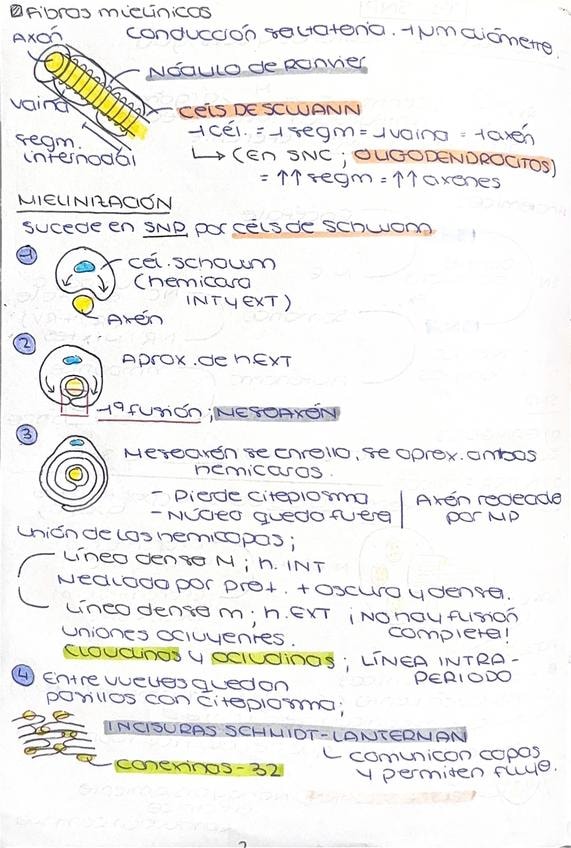 Fibras mielínicas
Axón
Conducción saltatoria. 1µm diámetro.
Nódulo de Ranvier
vaina
CÉLS DE SCWANN
segm.
internodal
1 cél. = 1 segm = 1 vaina = 1 axón
(En SNC; OLIGODENDROCITOS)
= ↑↑ segm = ↑↑ axones
MIELINIZACIÓN
Sucede en SNP por céls de Schwann
1
cél. schawn
(hemicara
INT y EXT)
Axón
2
Aprox. de h.EXT
1º fusión; MESOAXÓN
3
Mesoaxón se enrolla, se aprox. ambas
hemicaras.
- Pierde citoplasma
- Núcleo queda fuera
Axón rodeado
por MP
Unión de las hemicapas;
Línea densa M; h. INT
Mediada por prot. + oscura y densa.
Línea densa m; h.EXT ¡No hay fusión
completa!
Uniones ocluyentes.
Claudinas y ocludinas; LÍNEA INTRA-
PERIODO
4
Entre vueltas quedan
pasillos con citoplasma;
INCISURAS SCHMIDT-LANTERMAN
comunican capas
y permiten flujo.
conexinas-32